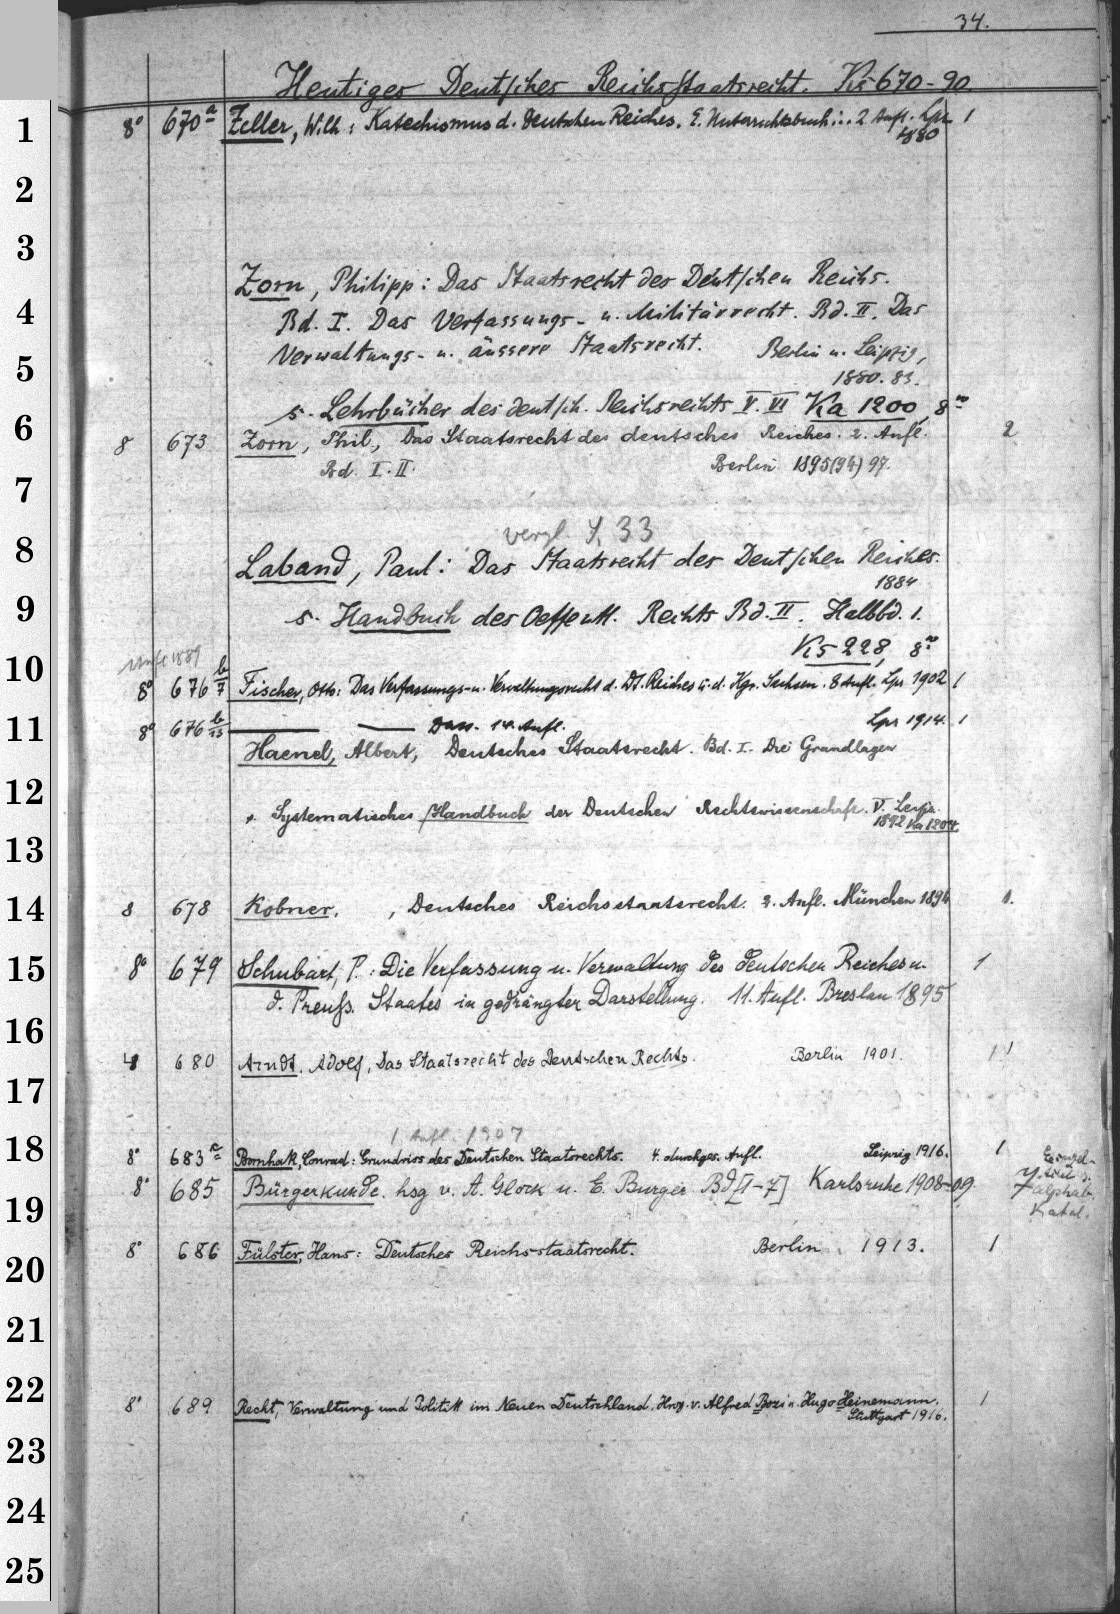 34.
Heutiges Deutsches Reichsstaatsrecht. Ks 670-90
1 8° 670 a Zeller, Wilh: Katechismus d. deutschen Reiches. E. Unterrichtsbuch... 2 Aufl. Lpz 1
1880
2
3
Zorn, Philipp: Das Staatsrecht des Deutschen Reichs.
4 Bd. I. Das Verfassungs- u. Militärrecht. Bd. II. Das
5 Verwaltungs- u. äussere Staatsrecht. Berlin u. Leipzig,
1880. 83.
s. Lehrbücher des deutsch. Reichsrechts V. VI Ka 1200, 8°
6 8 673 Zorn, Phil., Das Staatsrecht des deutsches Reiches. 2. Aufl. 2
Bd. I. II. Berlin 1895(94) 97.
7
vergl. S. 33
8 Laband, Paul: Das Staatsrecht des Deutschen Reiches.
1884
9 s. Handbuch des Oeffentl. Rechts Bd. II. Halbbd. 1.
Ks 228, 8°
10 1889
8° 676 b/7 Fischer, Otto: Das Verfassungs- u. Verwaltungsrecht d. Dt. Reiches u. d. Kgr. Sachsen. 8 Aufl. Lpz 1902 1
11 8° 676 b/15 — — Dass. 14. Aufl. Lpz 1914. 1
Haenel, Albert, Deutsches Staatsrecht. Bd. I. Die Grundlagen
12
s. Systematisches Handbuch der Deutschen Rechtswissenschaft. V. Leipz.
1892 Ka 1204
13
14 8 678 Kobner. , Deutsches Reichsstaatsrecht. 2. Aufl. München 1894 1.
15 8° 679 Schubart, P.: Die Verfassung u. Verwaltung des deutschen Reiches u. 1
d. Preuß. Staates in gedrängter Darstellung. 11. Aufl. Breslau 1895
16
4 680 Arndt, Adolf, Das Staatsrecht des Deutschen Reichs. Berlin 1901. 1
17
1 Aufl. 1907
18 8° 683 a Bornhak, Conrad: Grundriss des Deutschen Staatsrechts. 4. durchges. Aufl. Leipzig 1916. 1
8° 685 Bürgerkunde. hsg v. A. Glock u. E. Burger Bd [1-7] Karlsruhe 1908-09 7 s. alphab. Katal.
19
8° 686 Fülster, Hans: Deutsches Reichsstaatsrecht. Berlin 1913. 1
20
21
22 8° 689 Recht, Verwaltung und Politik im Neuen Deutschland. Hrsg. v. Alfred Bozi u. Hugo Heinemann. 1
Stuttgart 1916.
23
24
25